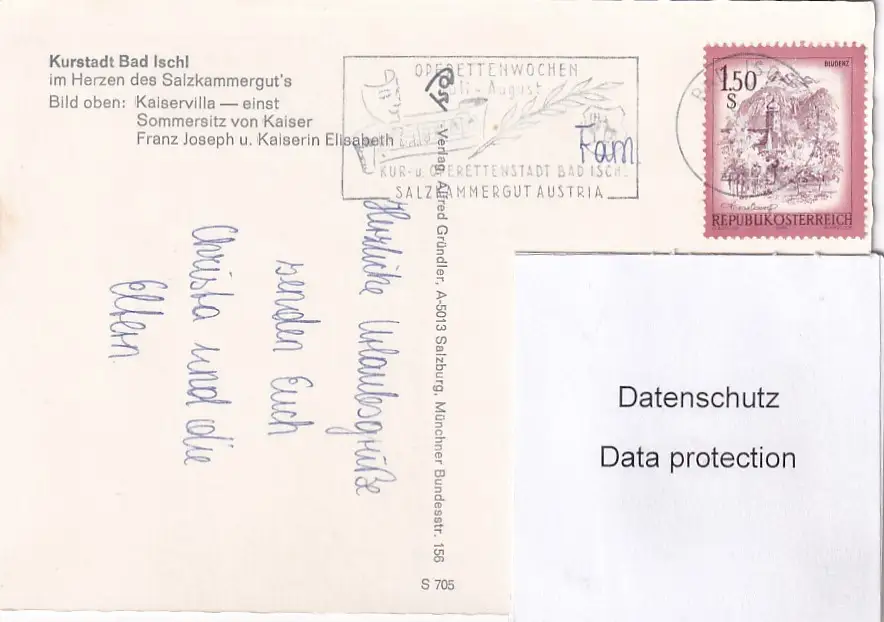 Kurstadt Bad Ischl
im Herzen des Salzkammergut's
Bild oben: Kaiservilla — einst
Sommersitz von Kaiser
Franz Joseph u. Kaiserin Elisabeth
OPERETTENWOCHEN
Juli - August
KUR- u. OPERETTENSTADT BAD ISCHL
SALZKAMMERGUT AUSTRIA
BLUDENZ
1.50
S
REPUBLIK ÖSTERREICH
Fam.
Herzliche Urlaubsgrüße
senden Euch
Christa und die
Eltern.
Verlag Alfred Gründler, A-5013 Salzburg, Münchner Bundesstr. 156
S 705
Datenschutz
Data protection